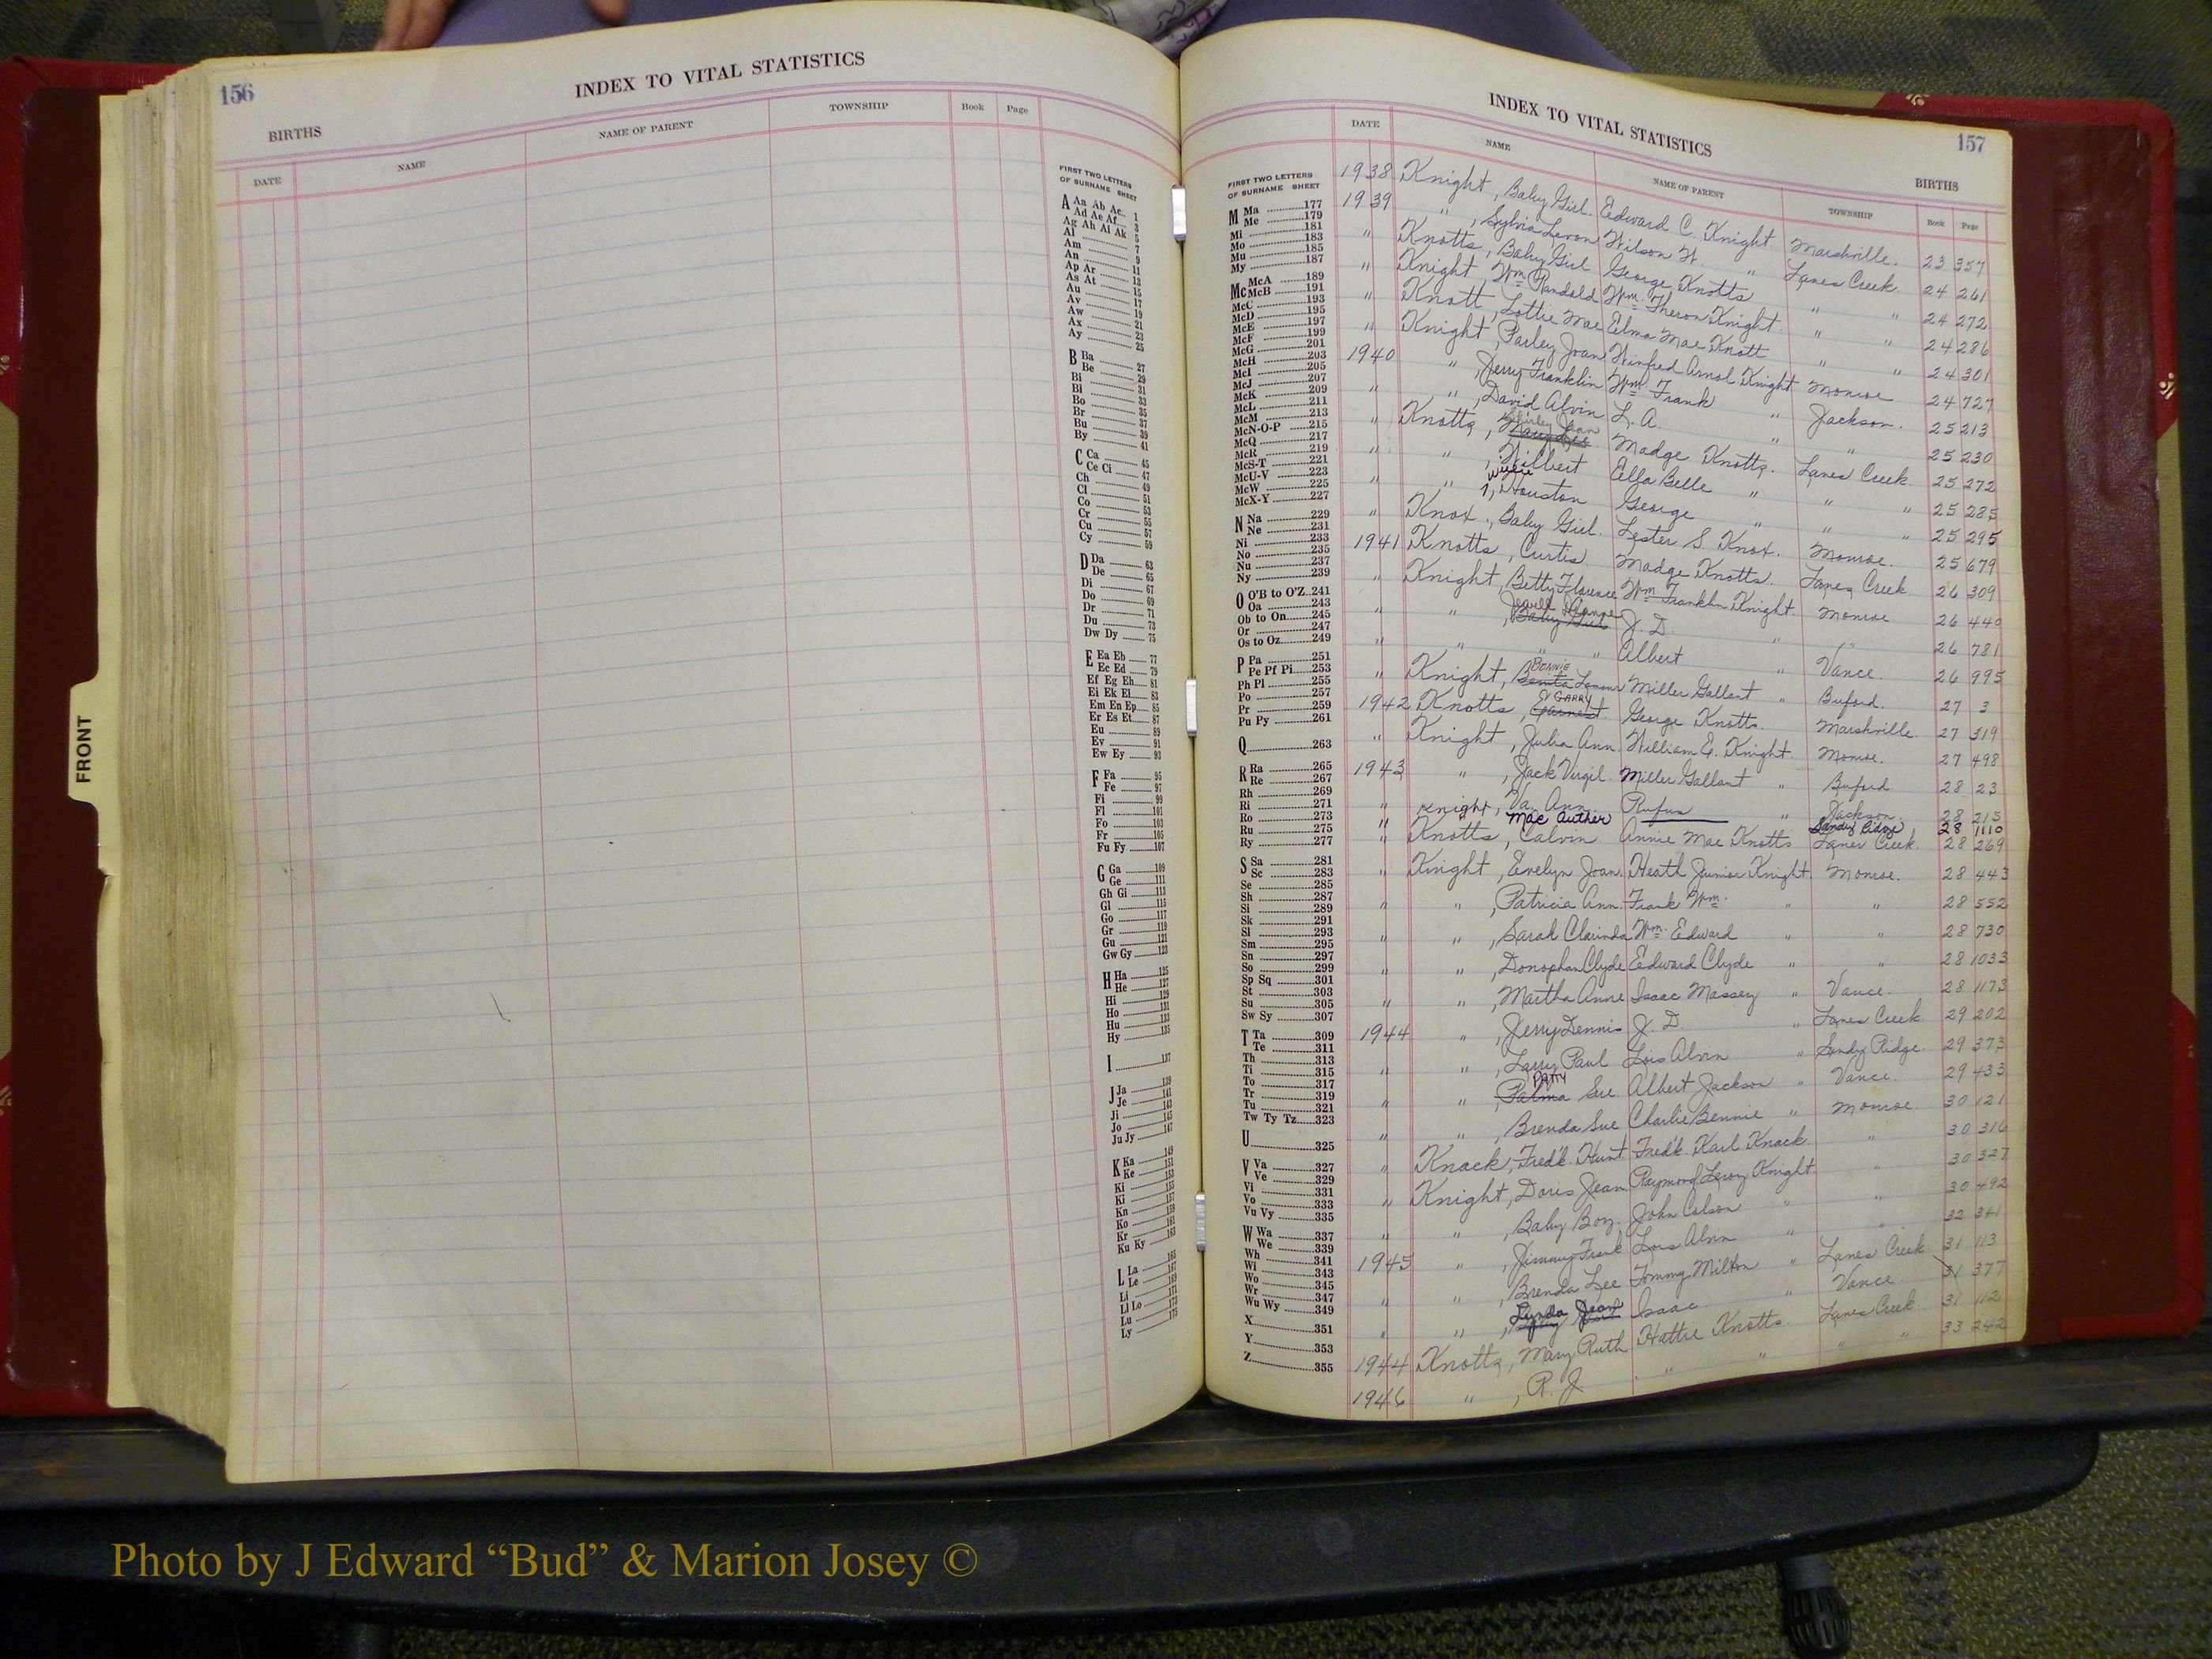 156
INDEX TO VITAL STATISTICS
BIRTHS
DATE NAME NAME OF PARENT TOWNSHIP Book Page
FIRST TWO LETTERS
OF SURNAME SHEET
A Aa Ab Ac 1
Ad Ae Af 3
Ag Ah Ai Ak 5
Al 7
Am 9
An 11
Ap Ar 13
As At 15
Au 17
Av 19
Aw 21
Ax 23
Ay 25
B Ba 27
Be 29
Bi 31
Bl 33
Bo 35
Br 37
Bu 39
By 41
C Ca 45
Ce Ci 47
Ch 49
Cl 51
Co 53
Cr 55
Cu 57
Cy 59
D Da 63
De 65
Di 67
Do 69
Dr 71
Du 73
Dw Dy 75
E Ea Eb 77
Ec Ed 79
Ef Eg Eh 81
Ei Ek El 83
Em En Ep 85
Er Es Et 87
Eu 89
Ev 91
Ew Ey 93
F Fa 95
Fe 97
Fi 99
Fl 101
Fo 103
Fr 105
Fu Fy 107
G Ga 109
Ge 111
Gh Gi 113
Gl 115
Go 117
Gr 119
Gu 121
Gw Gy 123
H Ha 125
He 127
Hi 129
Ho 131
Hu 133
Hy 135
I 137
J Ja 139
Je 141
Ji 143
Jo 145
Ju Jy 147
K Ka 149
Ke 151
Ki 153
Ki
Kn 159
Ko
Kr
Ku Ky 163
L La 165
Le 167
Li 169
Ll Lo
Lu
Ly 175
FRONT
INDEX TO VITAL STATISTICS
157
BIRTHS
DATE NAME NAME OF PARENT TOWNSHIP Book Page
FIRST TWO LETTERS
OF SURNAME SHEET
M Ma 177
Me 179
Mi 181
Mo 183
Mu 185
My 187
Mc McA 189
McB 191
McC 193
McD 195
McE 197
McF 199
McG 201
McH 203
McI 205
McJ 207
McK 209
McL 211
McM 213
McN-O-P 215
McQ 217
McR 219
McS-T 221
McU-V 223
McW 225
McX-Y 227
N Na 229
Ne 231
Ni 233
No 235
Nu 237
Ny 239
O O'B to O'Z 241
Oa 243
Ob to On 245
Or 247
Os to Oz 249
P Pa 251
Pe Pf Pi 253
Ph Pl 255
Po 257
Pr 259
Pu Py 261
Q 263
R Ra 265
Re 267
Rh 269
Ri 271
Ro 273
Ru 275
Ry 277
S Sa 281
Sc 283
Se 285
Sh 287
Si 289
Sk 291
Sl 293
Sm 295
Sn 297
So 299
Sp Sq 301
St 303
Su 305
Sw Sy 307
T Ta 309
Te 311
Th 313
Ti 315
To 317
Tr 319
Tu 321
Tw Ty Tz 323
U 325
V Va 327
Ve 329
Vi 331
Vo 333
Vu Vy 335
W Wa 337
We 339
Wh 341
Wi 343
Wo 345
Wr 347
Wu Wy 349
X 351
Y 353
Z 355
1938 Knight, Baby Girl. Edward C. Knight. Marshville. 23 357
1939 " , Sylvia Levon Wilson W. " Lanes Creek 24 261
" Knotts, Baby Girl George Knotts " " 24 272
" Knight Wm. Randold Wm. Theron Knight. " " 24 286
" Knott, Lottie Mae Elma Mae Knott " " 24 301
" Knight, Parley Joan Winfred Arnol Knight Monroe 24 727
1940 " , Jerry Franklin Wm. Frank " Jackson. 25 213
" " , David Alvin L. A. " " 25 230
" Knotts, Shirley Jean Madge Knotts. Lanes Creek. 25 272
" " , Wilbert Ella Belle " " " 25 285
" " , Willie Houston George " " " 25 295
" Knox, Baby Girl. Lester S. Knox. Monroe. 25 679
1941 Knotts, Curtis. Madge Knotts. Lanes Creek 26 309
" Knight, Betty Florence Wm. Franklin Knight. Monroe 26 440
" " , Baby Girl J. D. " " 26 781
" " " " Albert " Vance. 26 995
" Knight, Bonnie Lenour Miller Gallant " Buford. 27 3
1942 Knotts, Garry Garnest George Knotts. Marshville. 27 319
" Knight, Julia Ann. William E. Knight. Monroe. 27 498
1943 " , Jack Virgil. Miller Gallant " Buford 28 23
" Knight, Va. Ann. Rufus " Jackson. 28 215
" Mac Auther Sandy Ridge 28 1110
" Knotts, Calvin. Annie Mae Knotts Lanes Creek. 28 269
" Knight, Evelyn Joan. Heath Junior Knight. Monroe. 28 443
" " , Patricia Ann. Frank Wm. " " 28 552
" " , Sarah Clarinda Wm. Edward " " 28 730
" " , Donophan Clyde Edward Clyde " " 28 1033
" " , Martha Anne Isaac Massey " Vance. 28 1173
1944 " , Jerry Dennis J. D. " Lanes Creek. 29 202
" " , Larry Paul Lois Alvin " Sandy Ridge. 29 373
" " , Patty Palma Sue Albert Jackson " Vance. 29 433
" " , Brenda Sue Charlie Bennie " Monroe. 30 121
" Knack, Fred'k. Hunt Fred'k. Karl Knack. " 30 316
" Knight, Doris Jean Raymond Leroy Knight " 30 327
" " , Baby Boy. John Colson " " 30 492
1945 " , Jimmy Frank Lois Alvin " " 32 341
" " , Brenda Lee Tommy Milton " Lanes Creek 31 113
" " , Lynda Jean Isaac " Vance 31 377
1944 Knotts, Mary Ruth Hattie Knotts. Lanes Creek 31 112
1946 " , R. J. " " " " 33 242
Photo by J Edward “Bud” & Marion Josey ©